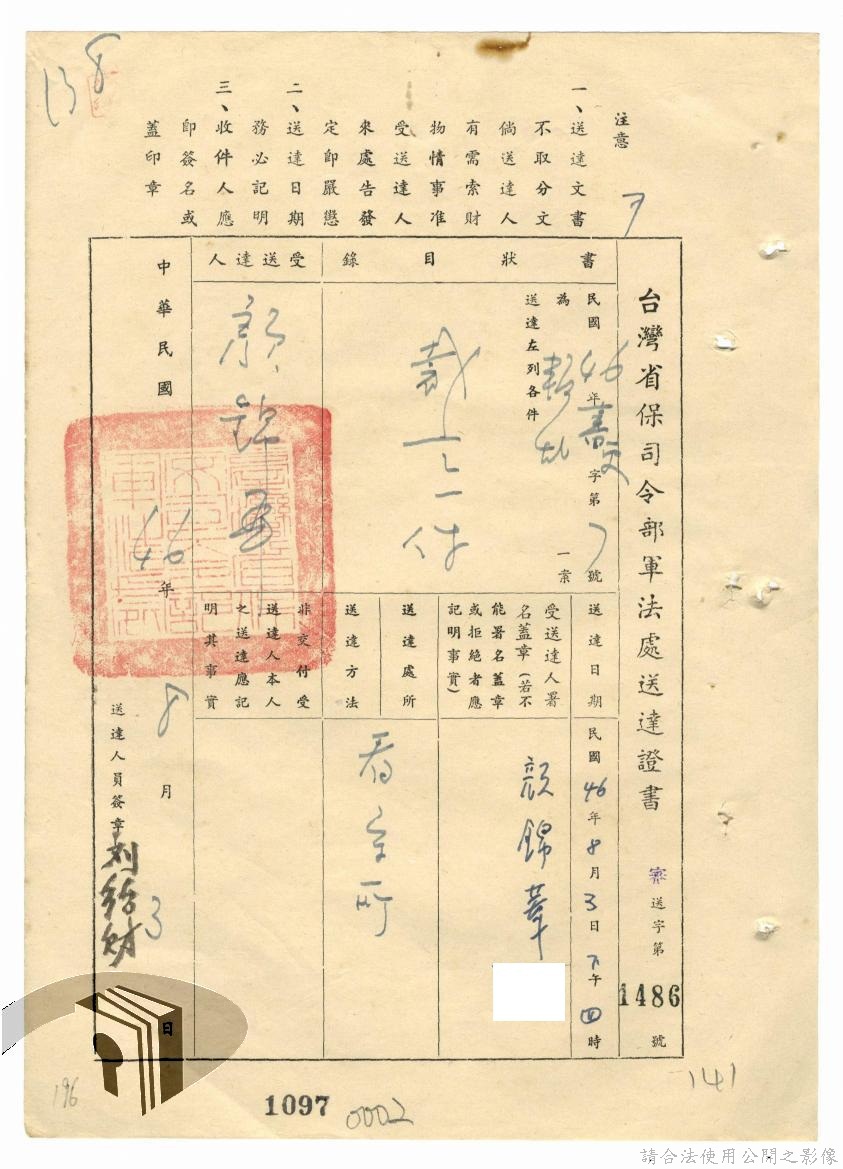 138
注意
一、送達文書
不取分文
倘送達人
有需索財
物情事准
受送達人
來處告發
定即嚴懲
二、送達日期
務必記明
三、收件人應
即簽名或
蓋印章
台灣省保司令部軍法處送達證書 審送字第1486號
書狀目錄
民國46年 字第 號
為 一案
送達左列各件
裁定一件
受送達人
顏錦華
送達日期
民國46年8月3日下午四時
受送達人署
名蓋章(若不
能署名蓋章
或拒絕者應
記明事實)
顏錦華
送達處所
看守所
送達方法
非交付受
送達人本人
之送達應記
明其事實
中華民國46年8月3
送達人員簽章
日
196
1097
0002
141
請合法使用公開之影像